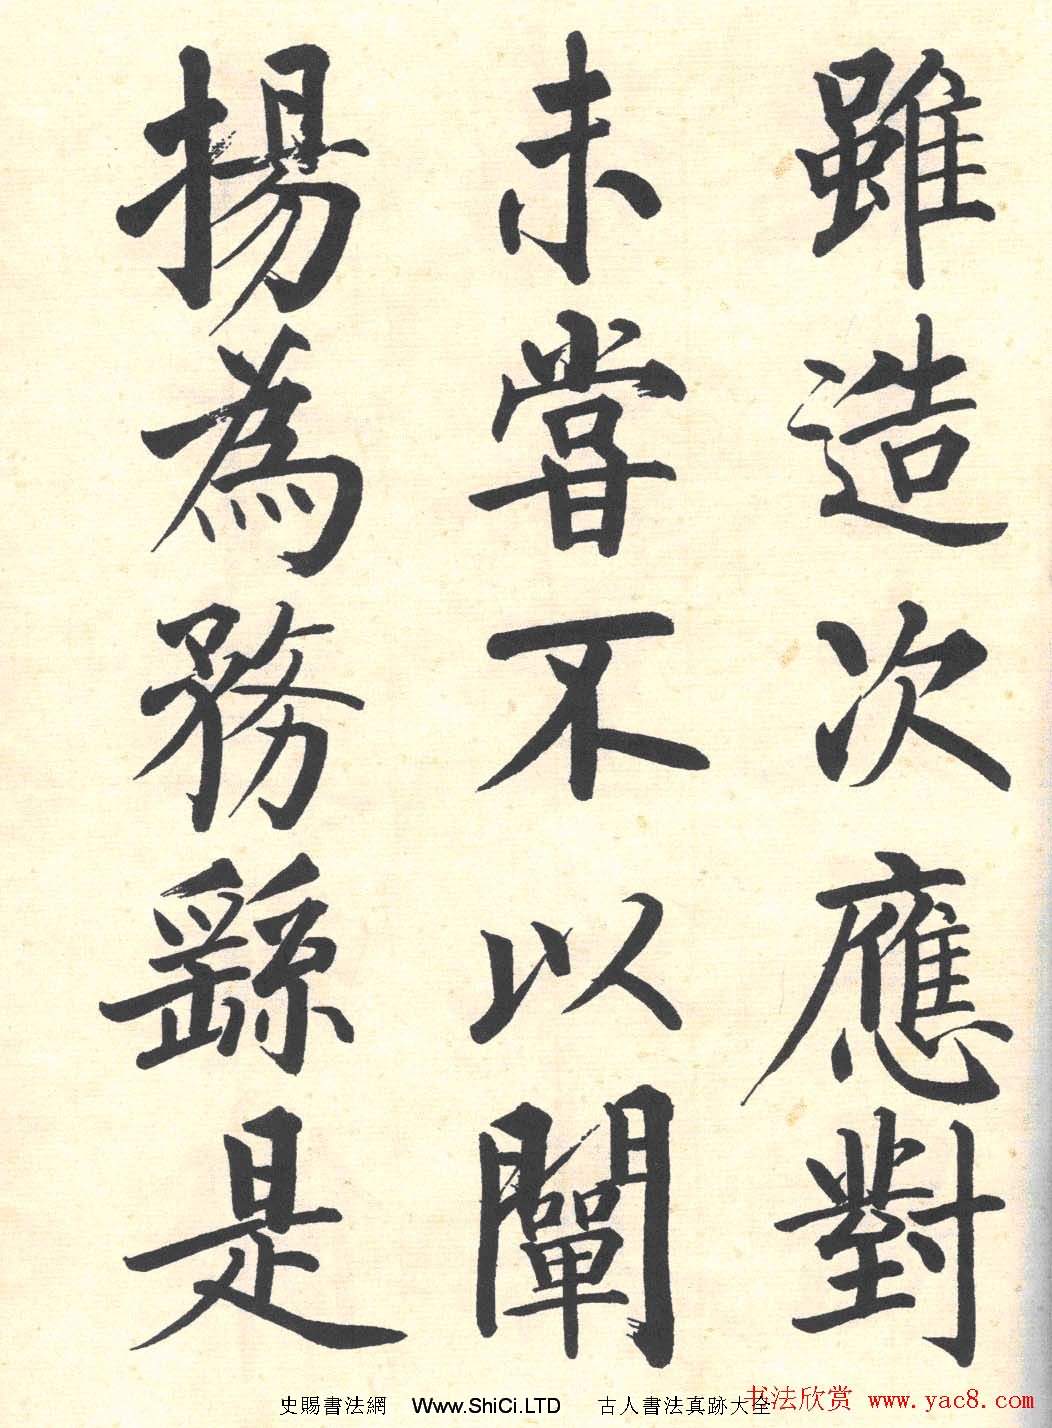 雖造次應對
未嘗不以闡
揚為務繇是
史賜書法網 Www.ShiCi.LTD 古人書法真跡大全
书法欣赏 www.yac8.com